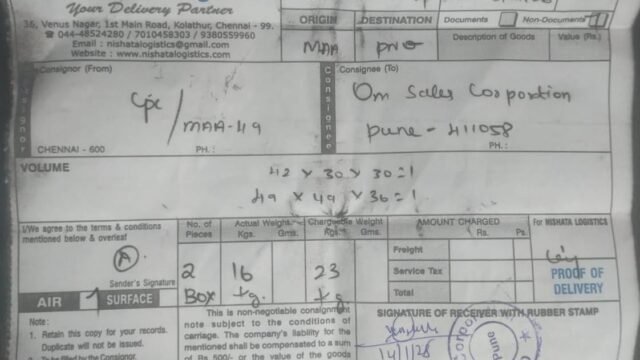 Your Delivery Partner
35, Venus Nagar, 1st Main Road, Kolathur, Chennai - 99.
☎ 044-48524280 / 7010458303 / 9380559960
Email : nishatalogistics@gmail.com
Website : www.nishatalogistics.com
ORIGIN DESTINATION Documents Non-Documents
MAA PNQ Description of Goods Value (Rs.)
Consignor (From) Consignee (To)
Cpc / MAA-49
Om Sales Corportion
Pune - 411058
CHENNAI - 600 PH. : PH. :
VOLUME
42 x 30 x 30 = 1
49 x 49 x 36 = 1
I/We agree to the terms & conditions mentioned below & overleaf
No. of Pieces Actual Weight Kgs. Gms. Chargeable Weight Kgs. Gms. AMOUNT CHARGED Rs. Ps. For NISHATA LOGISTICS
A
Freight
2 16 23 Service Tax PROOF OF
Sender's Signature Box kg. kg. Total DELIVERY
AIR SURFACE
Note :
1. Retain this copy for your records.
Duplicate will not be issued.
2. To be filled by the Consignor.
This is non-negotiable consignment
note subject to the conditions of
carriage. The company's liability for the
mentioned shall be compensated to a sum
of Rs 500/- or the value of the goods
SIGNATURE OF RECEIVER WITH RUBBER STAMP
Pune